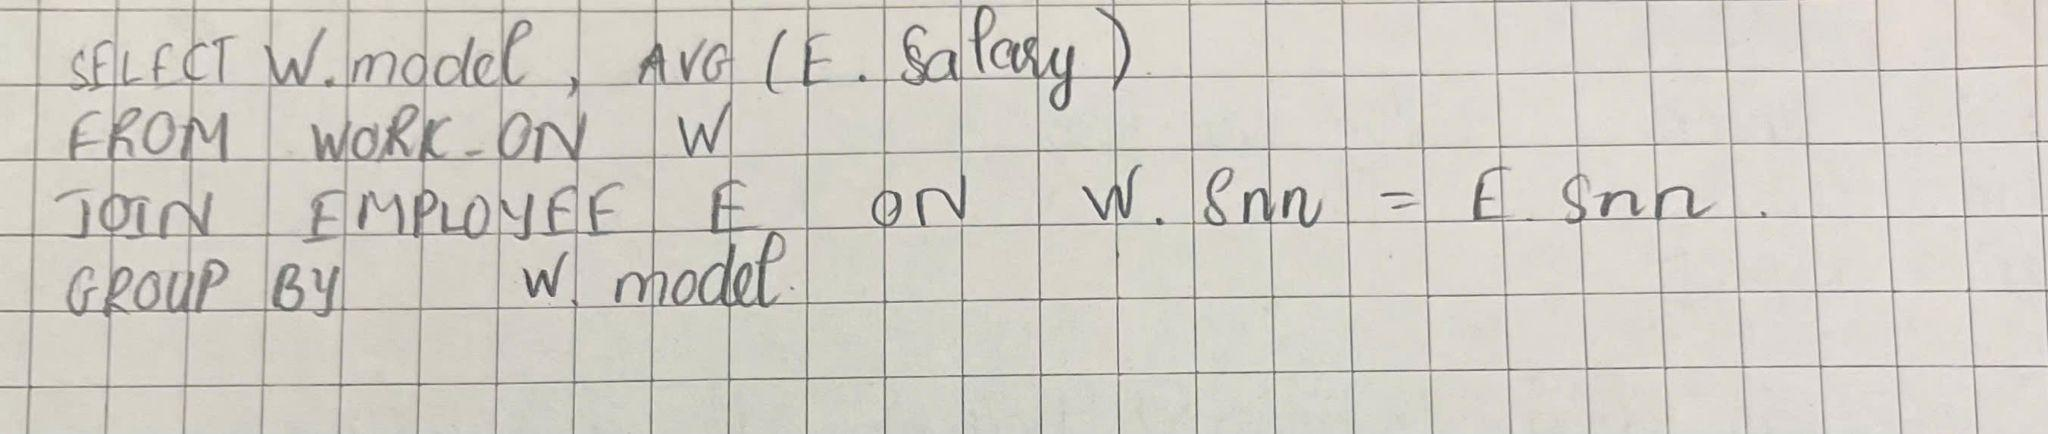 SELECT W.model, AVG (E. Salary)
FROM WORK_ON W
JOIN EMPLOYEE E ON W. Snn = E. Snn.
GROUP BY W. model.